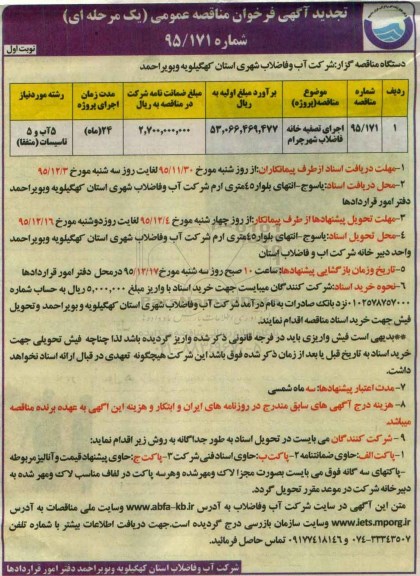 تجدید آگهی فرخوان مناقصه عمومی (یک مرحله ای)
شماره ۹۵/۱۷۱
نوبت اول
دستگاه مناقصه گزار:شرکت آب وفاضلاب شهری استان کهگیلویه وبویراحمد
ردیف
شماره مناقصه
موضوع مناقصه(پروژه)
برآورد مبلغ اولیه به ریال
مبلغ ضمانت نامه شرکت در مناقصه به ریال
مدت زمان اجرای پروژه
رشته موردنیاز
۱
۹۵/۱۷۱
اجرای تصفیه خانه فاضلاب شهرچرام
۵۳,۰۶۶,۴۶۹,۴۷۷
۲,۷۰۰,۰۰۰,۰۰۰
۲۴(ماه)
۵آب و ۵ تاسیسات (متفقا)
۱-مهلت دریافت اسناد ازطرف پیمانکاران:از روز شنبه مورخ ۹۵/۱۱/۳۰ لغایت روز سه شنبه مورخ ۹۵/۱۲/۳
۲-محل دریافت اسناد:یاسوج-انتهای بلوار۴۵متری ارم شرکت آب وفاضلاب شهری استان کهگیلویه وبویراحمد
دفتر امور قراردادها
۳-مهلت تحویل پیشنهادها از طرف پیمانکار:از روز چهار شنبه مورخ ۹۵/۱۲/۴ لغایت روزدوشنبه مورخ ۹۵/۱۲/۱۶
۴-محل تحویل اسناد:یاسوج-انتهای بلوار۴۵متری ارم شرکت آب وفاضلاب شهری استان کهگیلویه وبویراحمد
واحد دبیر خانه شرکت اب و فاضلاب استان
۵-تاریخ وزمان بازگشایی پیشنهادها: ساعت ۱۰ صبح روز سه شنبه مورخ ۹۵/۱۲/۱۷ درمحل دفتر امور قراردادها
۶-نحوه خرید اسناد:شرکت کنندگان میبایست جهت خرید اسناد با واریز مبلغ ۵,۰۰۰,۰۰۰ ریال به حساب شماره
۰۱۰۲۵۷۸۷۵۷۰۰۰ نزد بانک صادرات به نام درآمد شرکت آب وفاضلاب شهری استان کهگیلویه و بویراحمد و تحویل
فیش جهت خرید اسناد مناقصه اقدام نمایند.
**بدیهی است فیش واریزی باید در فرجه قانونی ذکر شده واریز گردیده باشد لذا چناچه فیش تحویلی جهت
خرید اسناد به تاریخ قبل یا بعد از زمان ذکر شده فوق باشد این شرکت هیچگونه تعهدی در قبال ارائه اسناد نخواهد
داشت.
۷-مدت اعتبار پیشنهادها: سه ماه شمسی
۸- هزینه درج آگهی های سابق مندرج در روزنامه های ایران و ابتکار و هزینه این اگهی به عهده برنده مناقصه
میباشد.
۹- شرکت کنندگان می بایست در تحویل اسناد به طور جداگانه به روش زیر اقدام نماید:
۱-پاکت الف:حاوی ضمانتنامه ۲-پاکت ب:حاوی اسناد فنی شرکت ۳-پاکت ج:حاوی پیشنهادقیمت و آنالیزمربوطه
-پاکتهای سه گانه فوق می بایست بصورت مجزا لاک ومهرشده وهرسه پاکت در لفاف مناسب لاک ومهر شده به
دبیرخانه شرکت در موعد مقرر تحویل گردد.
متن این آگهی در سایت شرکت آب وفاضلاب به آدرس www.abfa-kb.ir وسایت ملی مناقصات به آدرس
www.iets.mporg.ir وسایت سازمان بازرسی درج گردیده است.جهت دریافت اطلاعات بیشتر با شماره تلفن
۰۷۴-۳۳۳۴۳۵۰۷ و ۰۹۱۷۷۴۱۸۱۴۶ تماس حاصل فرمائید.
شرکت آب وفاضلاب استان کهگیلویه وبویراحمد دفتر امور قراردادها